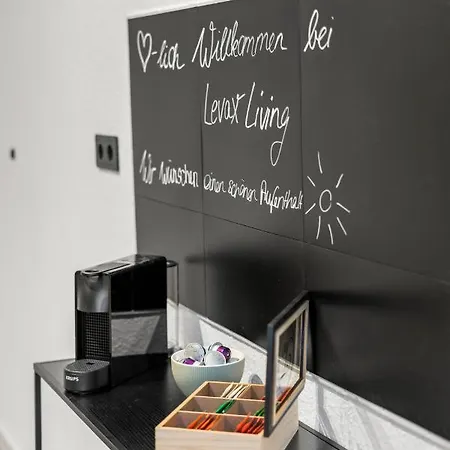 ♡-lich Willkommen bei
Levax Living
Wir wünschen einen schönen Aufenthalt
KRUPS